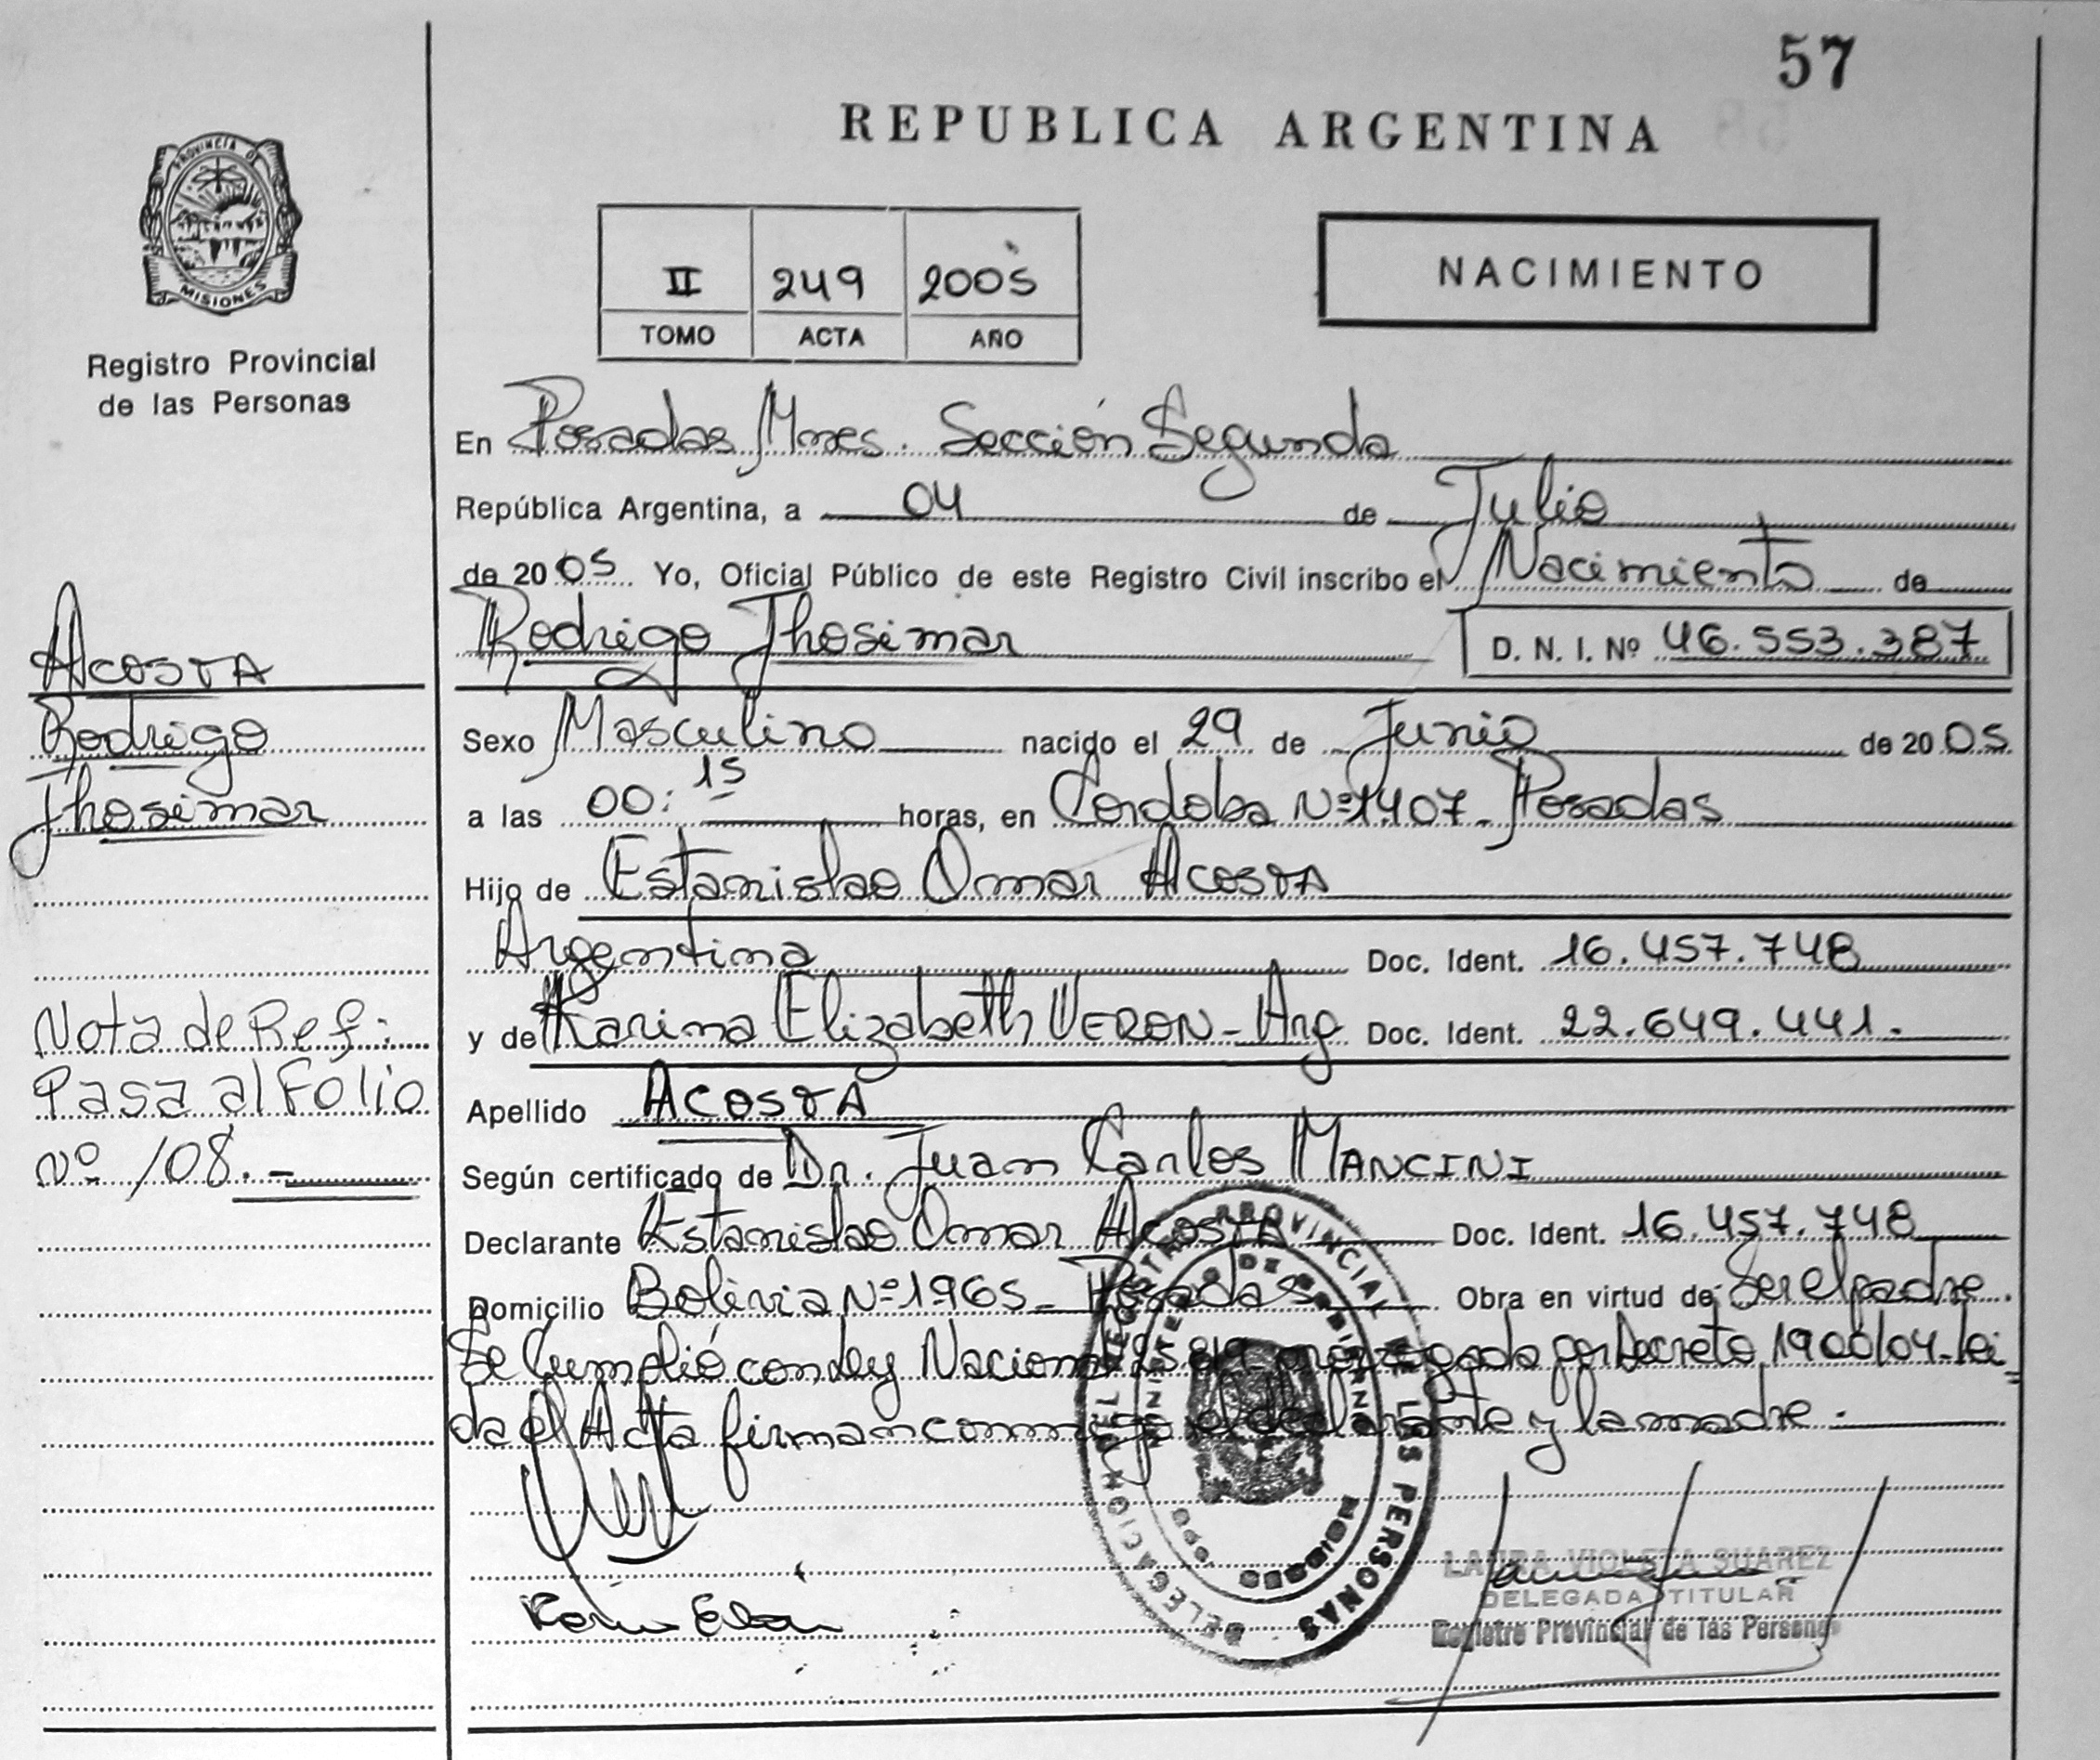 57
REPUBLICA ARGENTINA
PROVINCIA DE
MISIONES
Registro Provincial
de las Personas
II 249 2005
TOMO ACTA AÑO
NACIMIENTO
En Posadas Mnes. Sección Segunda
República Argentina, a 04 de Julio
de 2005 Yo, Oficial Público de este Registro Civil inscribo el Nacimiento de
Rodrigo Jhosimar D. N. I. Nº 46.553.387
ACOSTA
Rodrigo
Jhosimar
Nota de Ref:
Pasa al Folio
Nº 108.-
Sexo Masculino nacido el 29 de Junio de 2005
a las 00:15 horas, en Cordoba Nº 1407- Posadas
Hijo de Estanislao Omar ACOSTA
Argentina Doc. Ident. 16.457.748
y de Karina Elizabeth VERON - Arg Doc. Ident. 22.649.441.
Apellido ACOSTA
Según certificado de Dr. Juan Carlos MANCINI
Declarante Estanislao Omar ACOSTA Doc. Ident. 16.457.748
Domicilio Bolivia Nº 1965- Posadas Obra en virtud de Ser el padre.
Se Cumplió con ley Nacional 25.819 prorrogada por Decreto 1900/04-lei=
da el Acta firman conmigo el declarante y la madre.
DELEGACION DEL REGISTRO PROVINCIAL DE LAS PERSONAS
MINISTERIO DE GOBIERNO
LAURA VIOLETA SUAREZ
DELEGADA TITULAR
Registro Provincial de las Personas